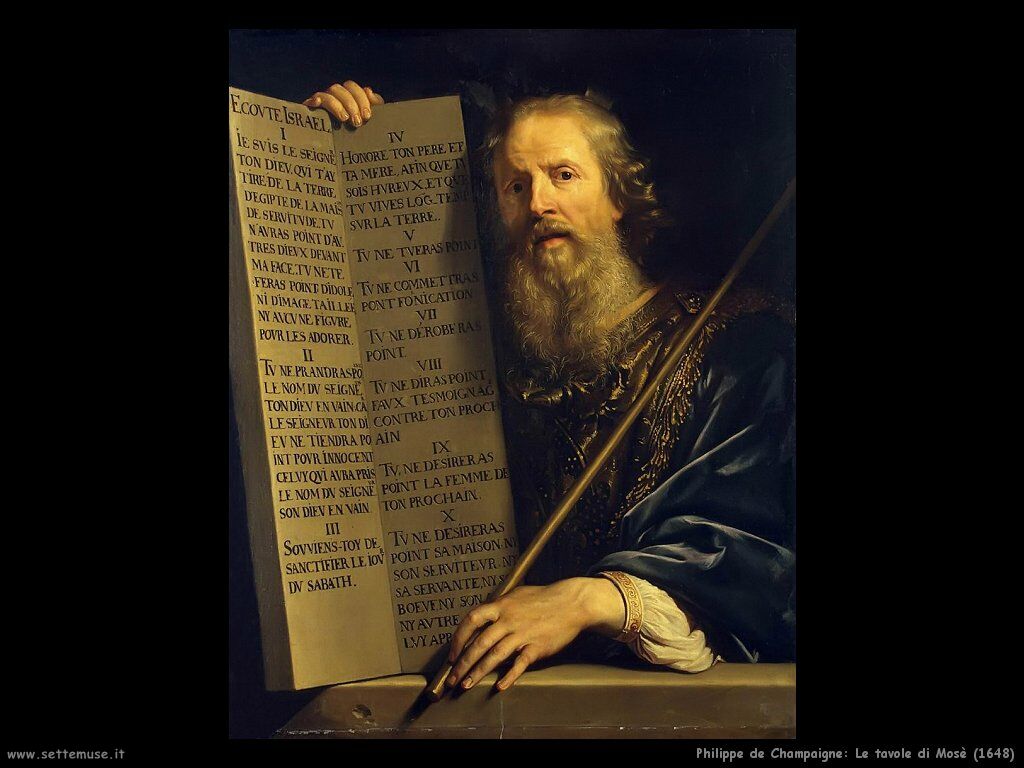 ECOVTE ISRAEL
I
IE SVIS LE SEIGNE
TON DIEV, QVI T'AY
TIRE DE LA TERRE
D'EGIPTE DE LA MAIS
DE SERVITVDE. TV
N'AVRAS POINT D'AV
TRES DIEVX DEVANT
MA FACE. TV NE TE
FERAS POINT D'IDOLE
NI D'IMAGE TAILLEE
NY AVCVNE FIGVRE
POVR LES ADORER.
II
TV NE PRANDRAS PO
LE NOM DV SEIGNE
TON DIEV EN VAIN. CA
LE SEIGNEVR TON DI
EV NE TIENDRA PO
INT POVR INNOCENT
CELVY QVI AVRA PRIS
LE NOM DV SEIGNE
SON DIEV EN VAIN.
III
SOVVIENS-TOY DE
SANCTIFIER LE IOV
DV SABATH.
IV
HONORE TON PERE ET
TA MERE, AFIN QVE TV
SOIS HVREVX, ET QVE
TV VIVES LOG-TEMP
SVR LA TERRE.
V
TV NE TVERAS POINT
VI
TV NE COMMETTRAS
PONT FO'NICATION
VII
TV NE DÉROBERAS
POINT.
VIII
TV NE DIRAS POINT
FAVX TESMOIGNAG
CONTRE TON PROCH
AIN
IX
TV, NE DESIRERAS
POINT LA FEMME DE
TON PROCHAIN.
X
TV NE DESIRERAS
POINT SA MAISON, NY
SON SERVITEVR, NY
SA SERVANTE, NY S
BOEVF, NY SON
NY AVTRE
LVY APP
www.settemuse.it
Philippe de Champaigne: Le tavole di Mosè (1648)